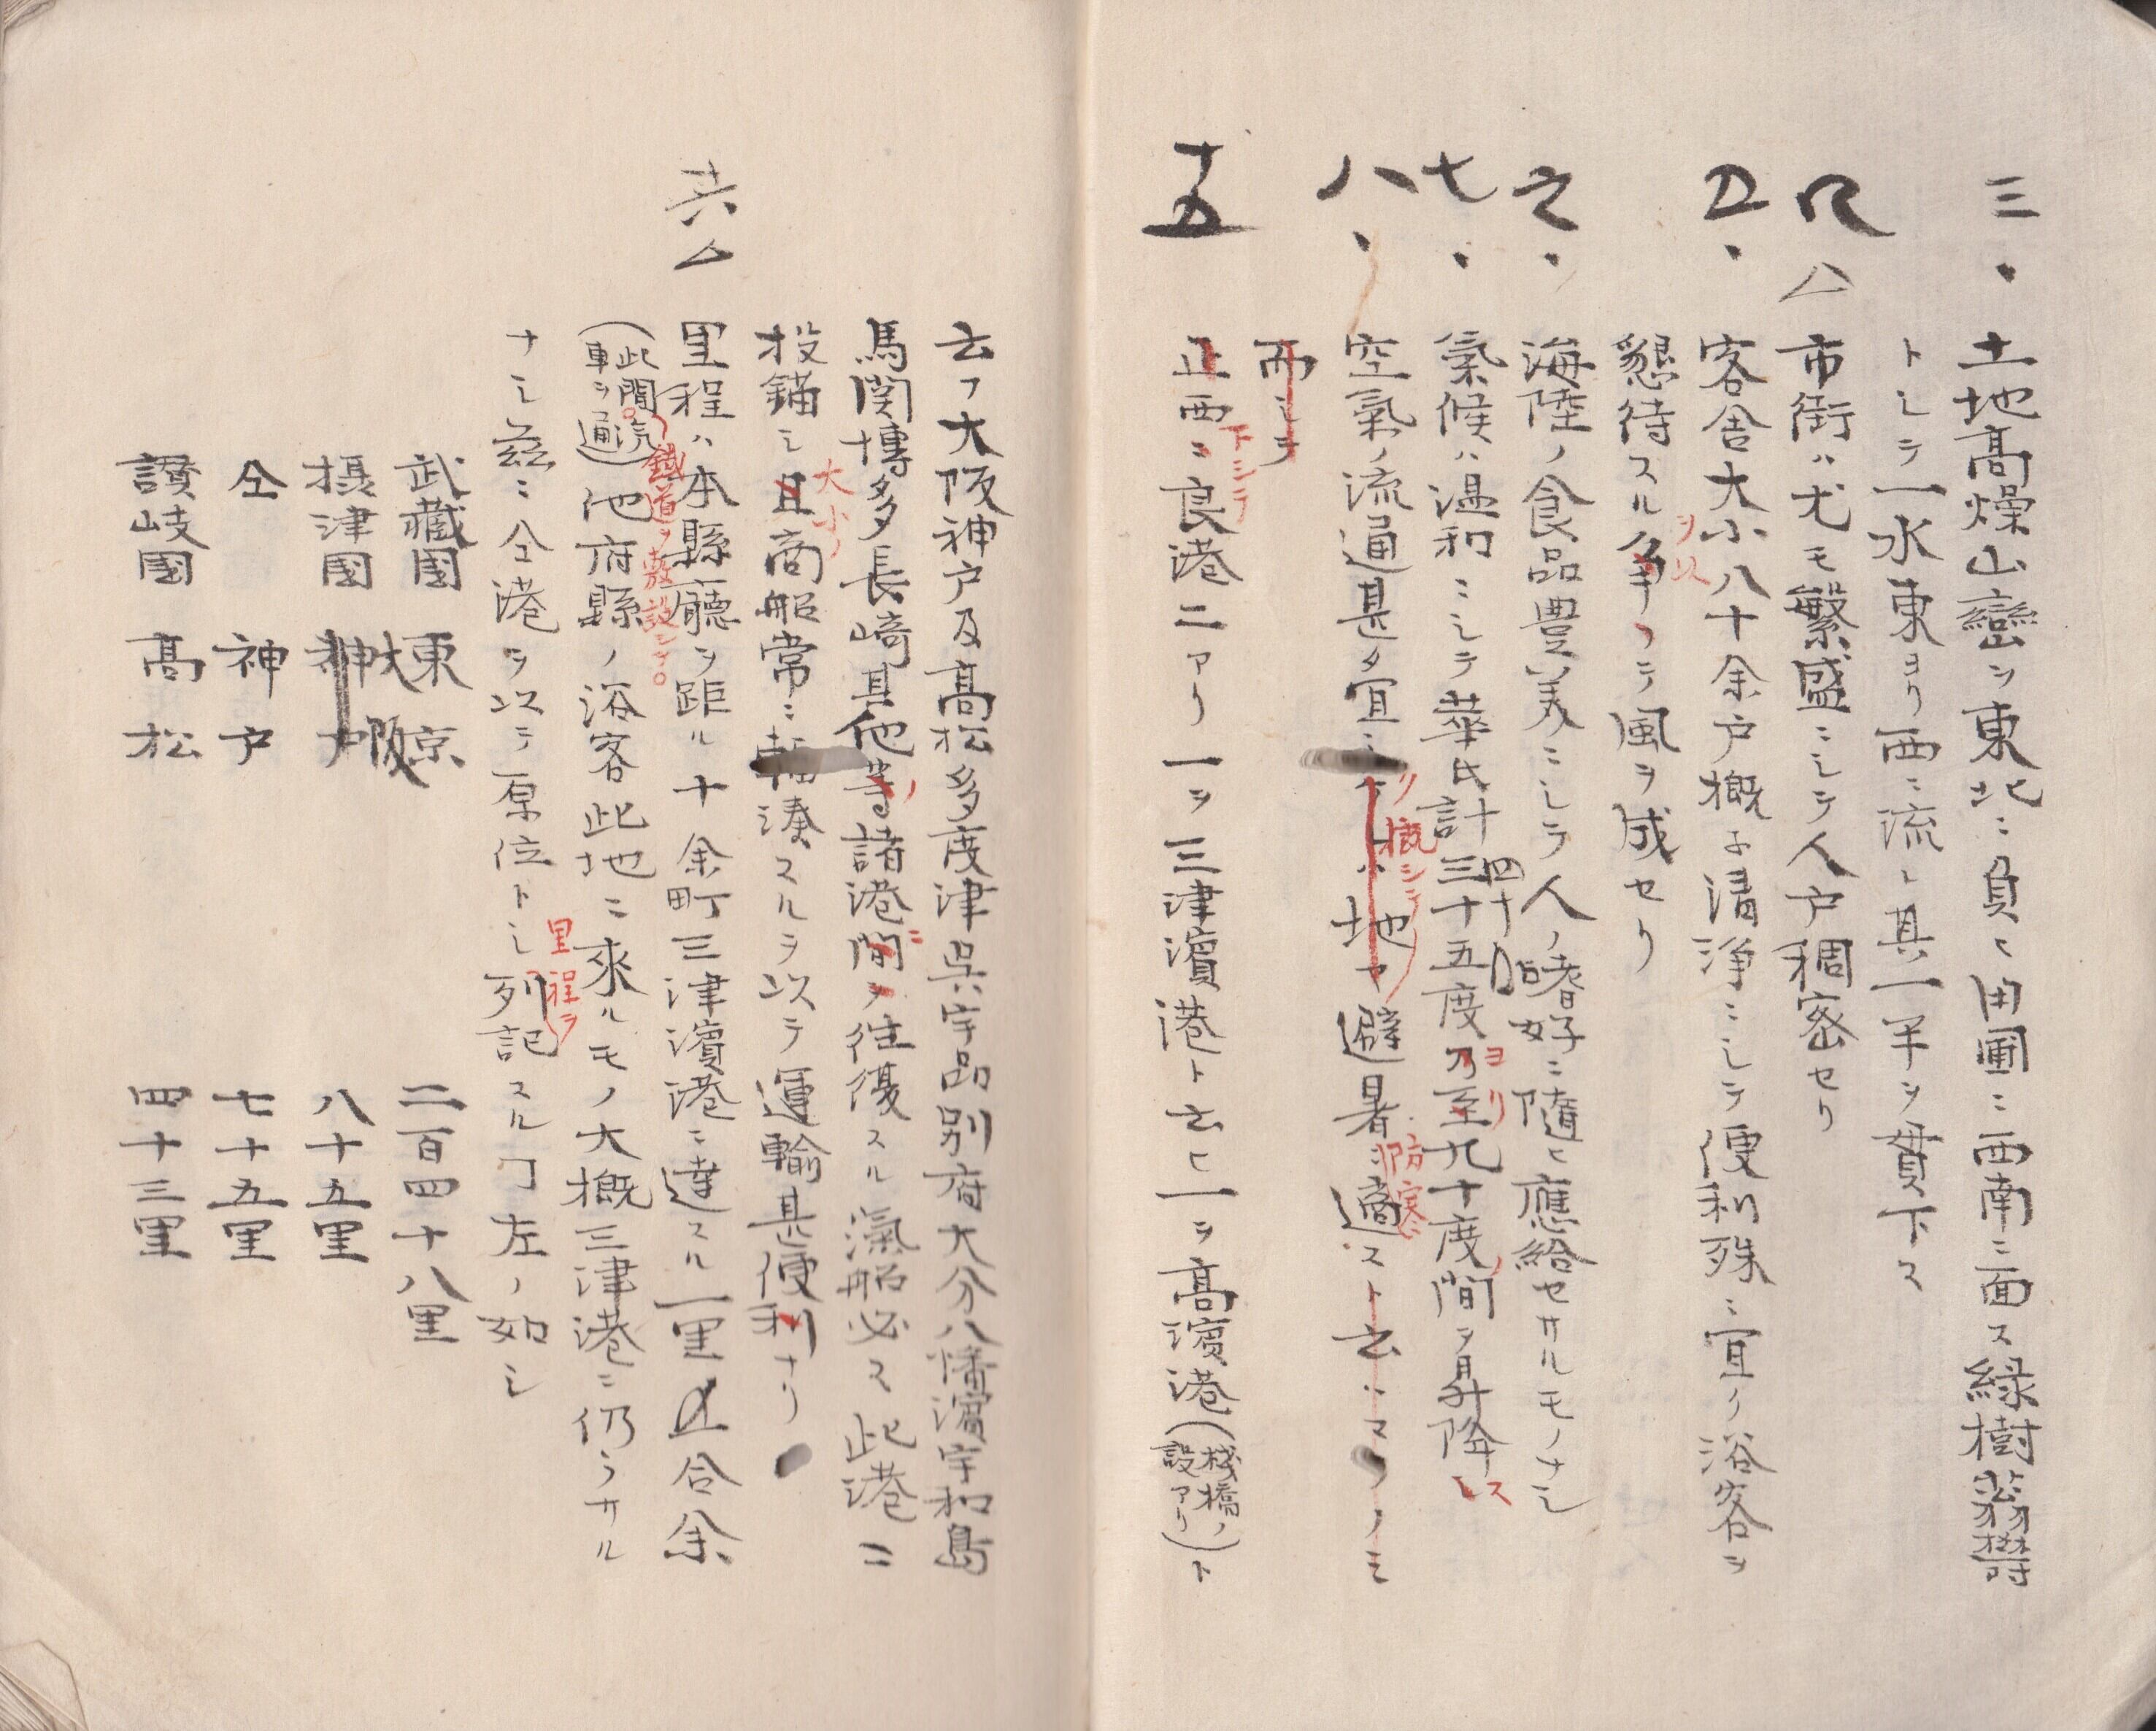 三、 土地髙燥山巒ヲ東北ニ負ヒ田圃ニ西南ニ面ス緑樹蓊欝
トシテ一水東ヨリ西ニ流レ其一半ヲ貫下ス
四 △ 市街ハ尤モ繁盛ニシテ人戸稠密セリ
五、 客舎大小八十余戸概子清浄ニシテ便利殊ニ宜ク浴客ヲ
ヲ以
懇待スル争フテ風ヲ成セリ
六、 海陸ノ食品豊美ニシテ人ノ嗜好ニ隨ヒ應給セサルモノナシ
七、 氣候ハ温和ニシテ華氏計三十五度乃至九十度間ヲ昇降
四十
ヨリ
ノ
ス
八、 空氣ノ流通甚タ宜シ 地 避暑ニ適スト云
リ概シテ
防寒
而シテ
十五 正西ニ良港二アリ一ヲ三津濵港ト云ヒ一ヲ髙濵港(棧橋ノ設アリ)ト
下シテ
云フ大阪神户及髙松多度津呉宇品别府大分八幡濵宇和島
馬関博多長﨑其他等諸港間ヲ往復スル滊船必ス此港ニ
ノ
ニ
投錨シ且商船常ニ輻湊スルヲ以テ運輸甚便利ナリ
大小ノ
十六 △ 里程ハ本縣廳ヲ距ル十余町三津濵港ニ達スル一里 合余
鐵道ヲ敷設シテ
(此間汽車ヲ通)他府縣ノ浴客此地ニ來ルモノ大概三津港ニ仍ラサル
ナシ茲ニ仝港ヲ以テ原位トシ列記スルヿ左ノ如シ
里程ヲ
武藏國 東京 二百四十八里
摂津國 神户 大阪 八十五里
仝 神户 七十五里
讃岐國 髙松 四十三里